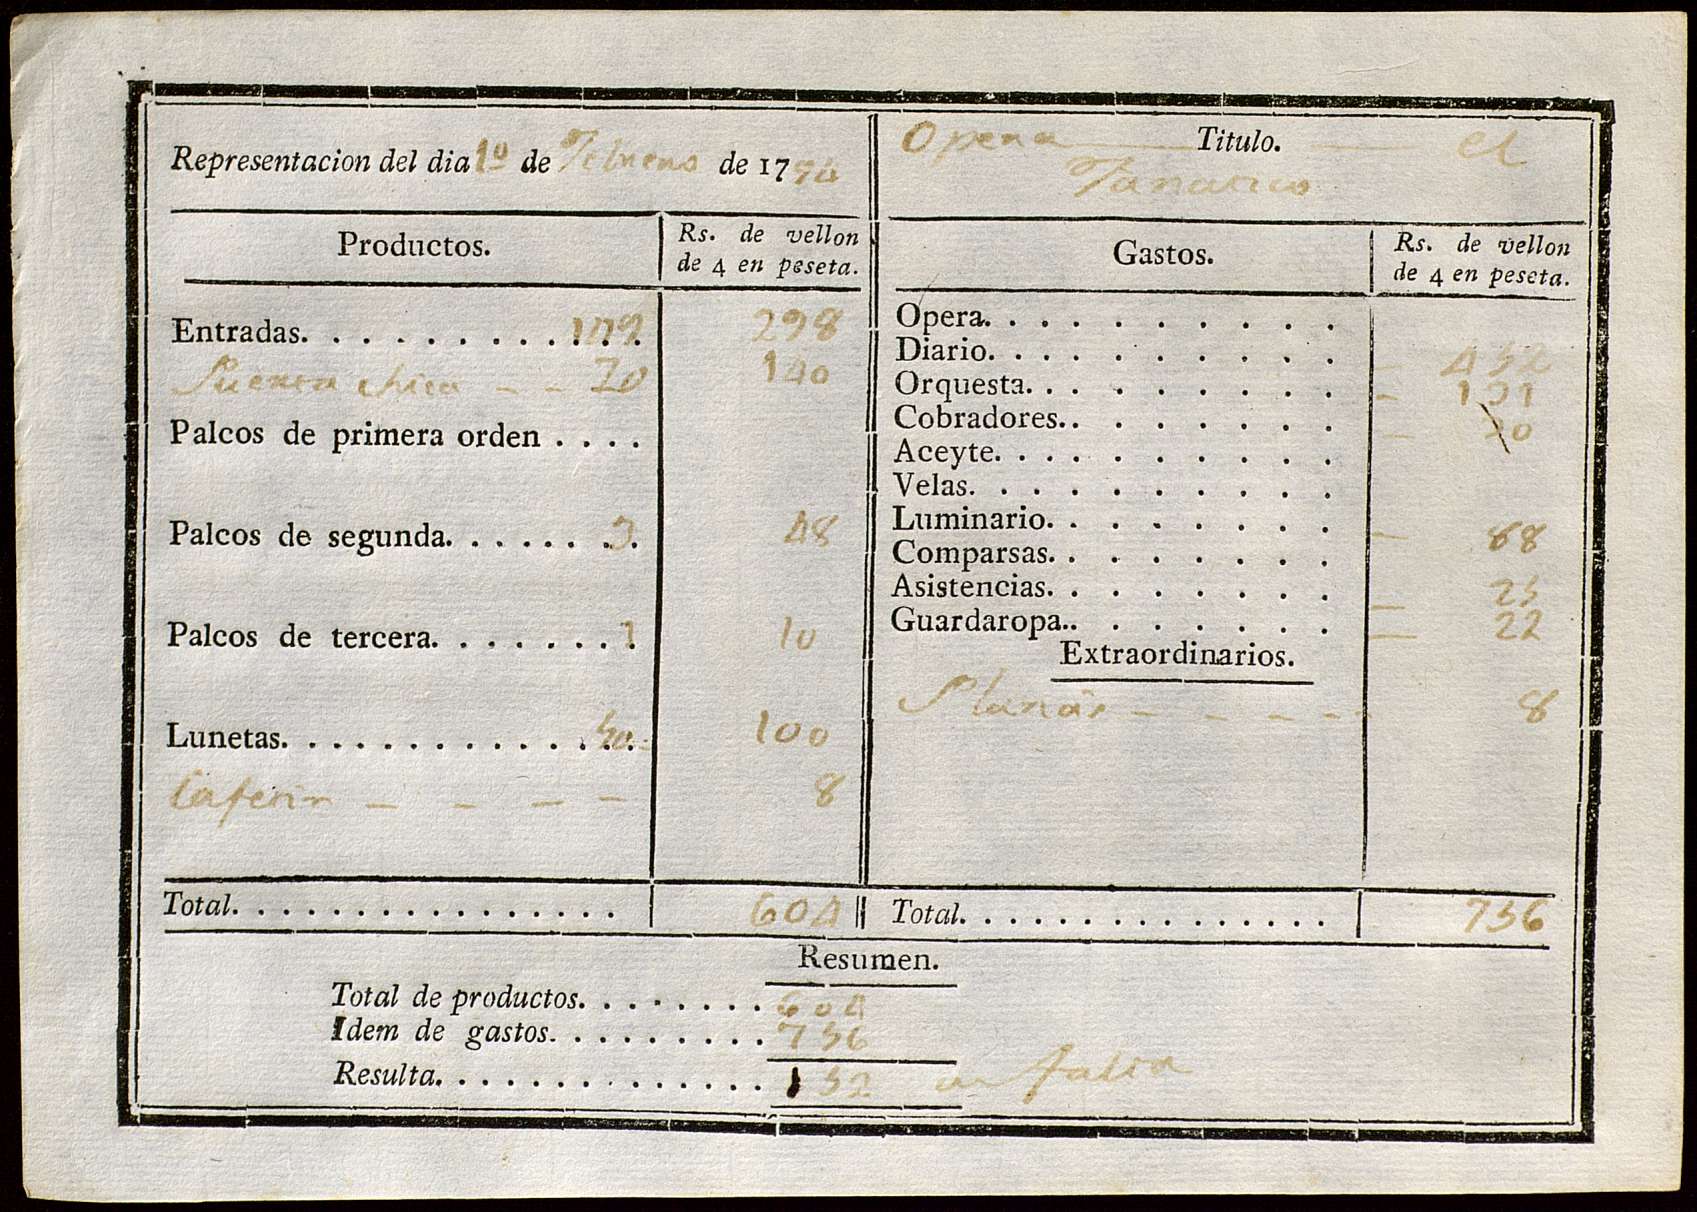 Representacion del dia 1º de Febrero de 1794
Opera Titulo. el
Fanatico
Productos. Rs. de vellon de 4 en peseta.
Gastos. Rs. de vellon de 4 en peseta.
Entradas. . . . . . . . . . . . . 149 298
Puerta chica - - 70 140
Palcos de primera orden . . . .
Palcos de segunda. . . . . . . . 3 48
Palcos de tercera. . . . . . . . 1 10
Lunetas. . . . . . . . . . . . . . 50 100
Cafetin - - - - 8
Total. . . . . . . . . . . . . . . . 604
Opera. . . . . . . . . . .
Diario. . . . . . . . . . . 452
Orquesta. . . . . . . . . . 151
Cobradores.. . . . . . . . 30
Aceyte. . . . . . . . . . .
Velas. . . . . . . . . . .
Luminario. . . . . . . . . 68
Comparsas. . . . . . . . .
Asistencias. . . . . . . . . 25
Guardaropa.. . . . . . . . 22
Extraordinarios.
- - - - - 8
Total. . . . . . . . . . . . . . . 756
Resumen.
Total de productos. . . . . . . . 604
Idem de gastos. . . . . . . . . 756
Resulta. . . . . . . . . . . . . . 152 en falta